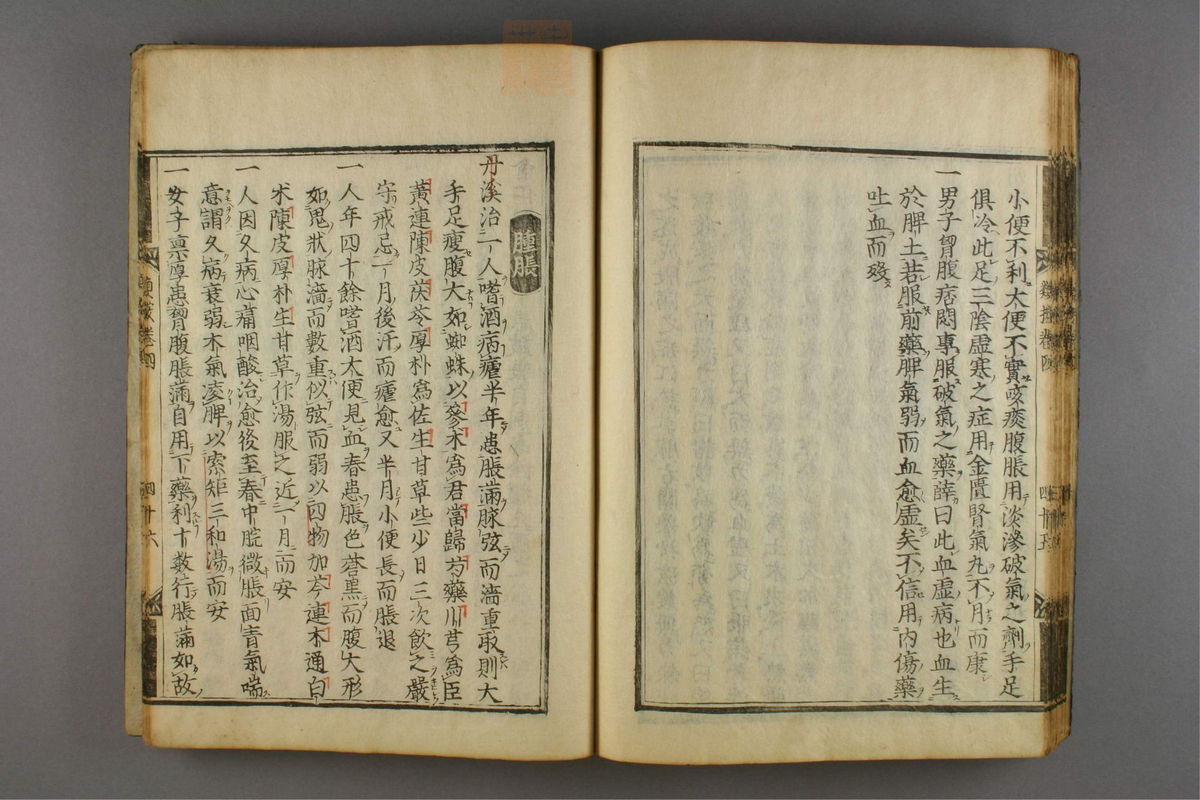 小便不利大便不實咳痰腹脹用淡滲破氣之劑手足
俱冷此足三陰虛寒之症用金匱腎氣丸不月而康
一男子胷腹痞悶專服破氣之藥薛曰此血虛病也血生
於脾土若服前藥脾氣弱而血愈虛矣不信用內傷藥
吐血而歿
腫脹
丹溪治一人嗜酒病瘧半年患脹滿脉弦而濇重取則大
手足瘦腹大如蜘蛛以參朮為君當歸芍藥川芎為臣
黃連陳皮茯苓厚朴為佐生甘草些少日三次飲之嚴
守戒忌一月後汗而瘧愈又半月小便長而脹退
一人年四十餘嗜酒大便見血春患脹色蒼黑而腹大形
如鬼狀脉濇而數重似弦而弱以四物加芩連木通白
朮陳皮厚朴生甘草作湯服之近一月而安
一人因久病心痛咽酸治愈後至春中脘微脹面青氣喘
意謂久病衰弱木氣凌脾以索矩三和湯而安
一女子稟厚患胷腹脹滿自用下藥利十數行脹滿如故
類按卷四
四十六